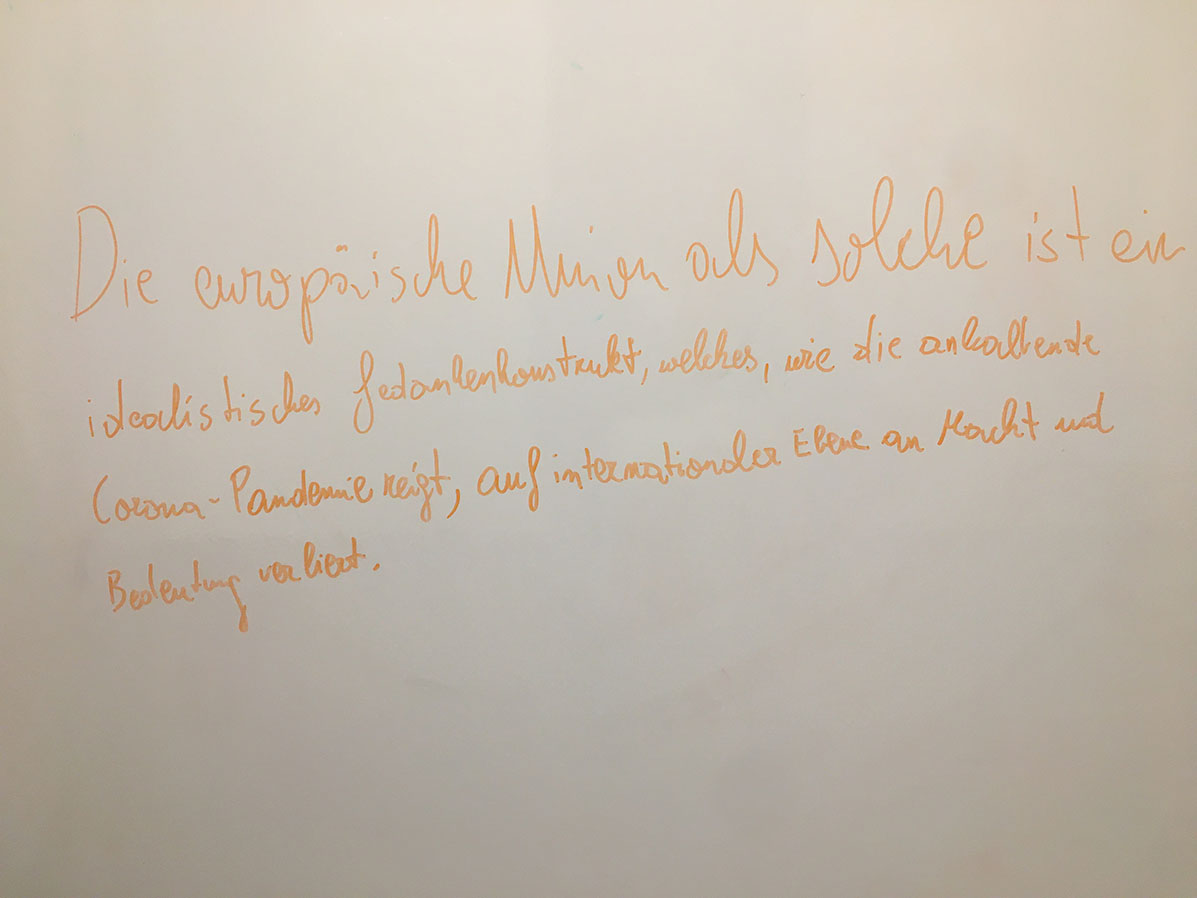 Die europäische Union als solche ist ein
idealistisches Gedankenkonstrukt, welches, wie die anhaltende
Corona-Pandemie zeigt, auf internationaler Ebene an Macht und
Bedeutung verliert.